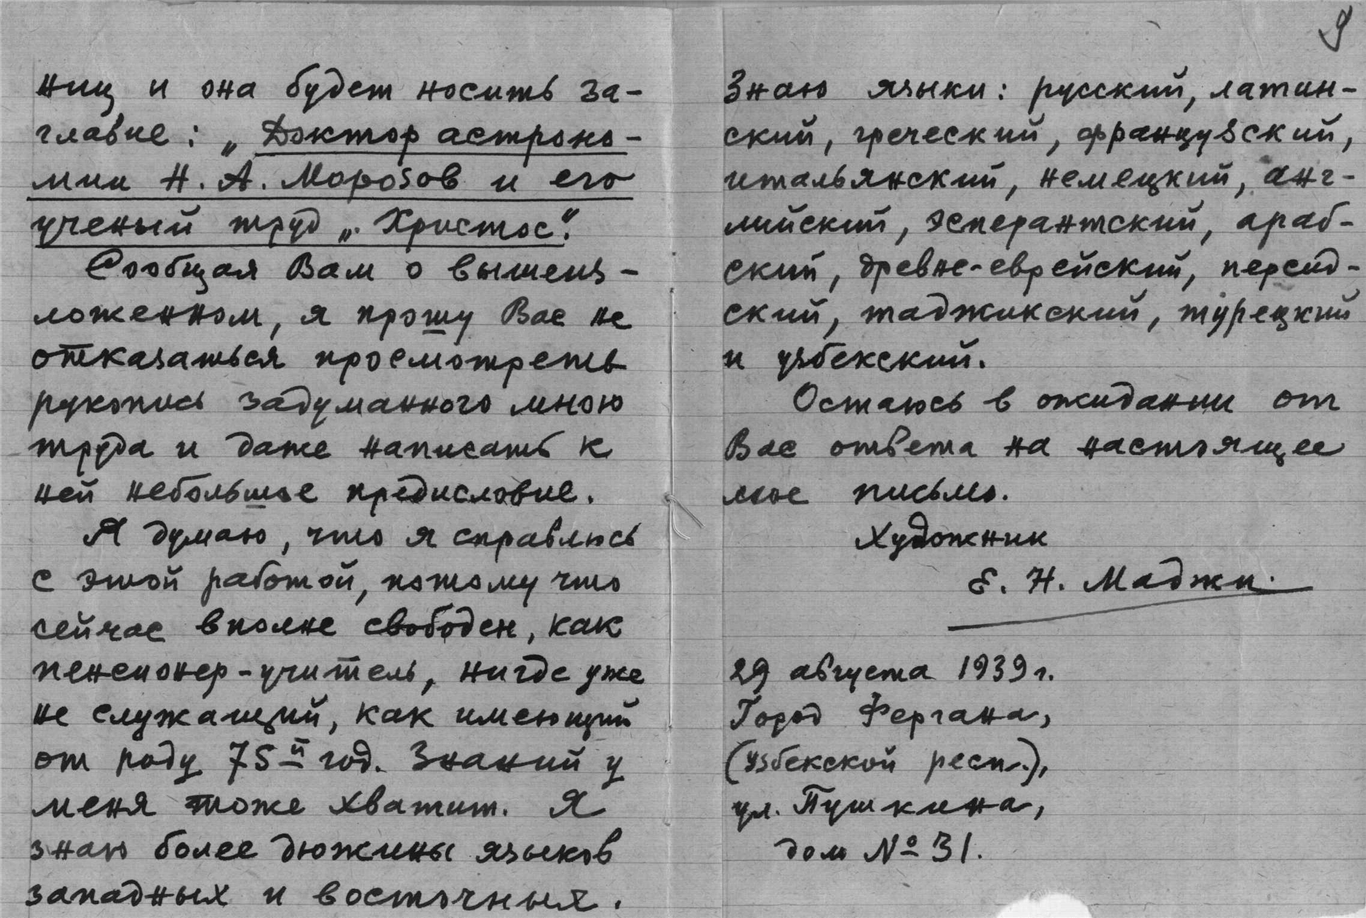 ниц и она будет носить за-
главие: „Доктор астроно-
мии Н. А. Морозов и его
ученый труд „Христос“.
Сообщая Вам о вышеиз-
ложенном, я прошу Вас не
отказаться просмотреть
рукопись задуманного мною
труда и даже написать к
ней небольшое предисловие.
Я думаю, что я справлюсь
с этой работой, потому что
сейчас вполне свободен, как
пенсионер-учитель, нигде уже
не служащий, как имеющий
от роду 75й год. Знаний у
меня тоже хватит. Я
знаю более дюжины языков
западных и восточных.
9
Знаю языки: русский, латин-
ский, греческий, французский,
итальянский, немецкий, анг-
лийский, эсперантский, араб-
ский, древне-еврейский, персид-
ский, таджикский, турецкий
и узбекский.
Остаюсь в ожидании от
Вас ответа на настоящее
мое письмо.
Художник
Е. Н. Маджи.
29 августа 1939 г.
Город Фергана,
(узбекской респ.),
ул. Пушкина,
дом № 31.